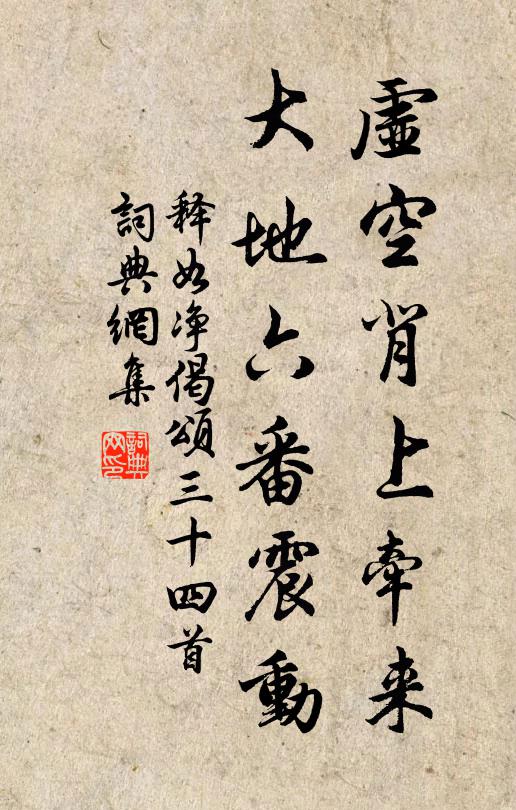 虚空背上牽来
大地六番震動
释如净偈頌三十四首
詞典網集
詞典网印